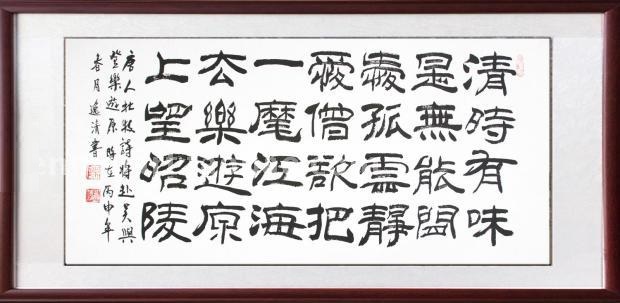 清時有味
是無能閒
愛孤雲靜
愛僧欲把
一麾江海
去樂遊原
上望昭陵
唐人杜牧詩將赴吳興
登樂遊原 時在丙申年
春月逸清書